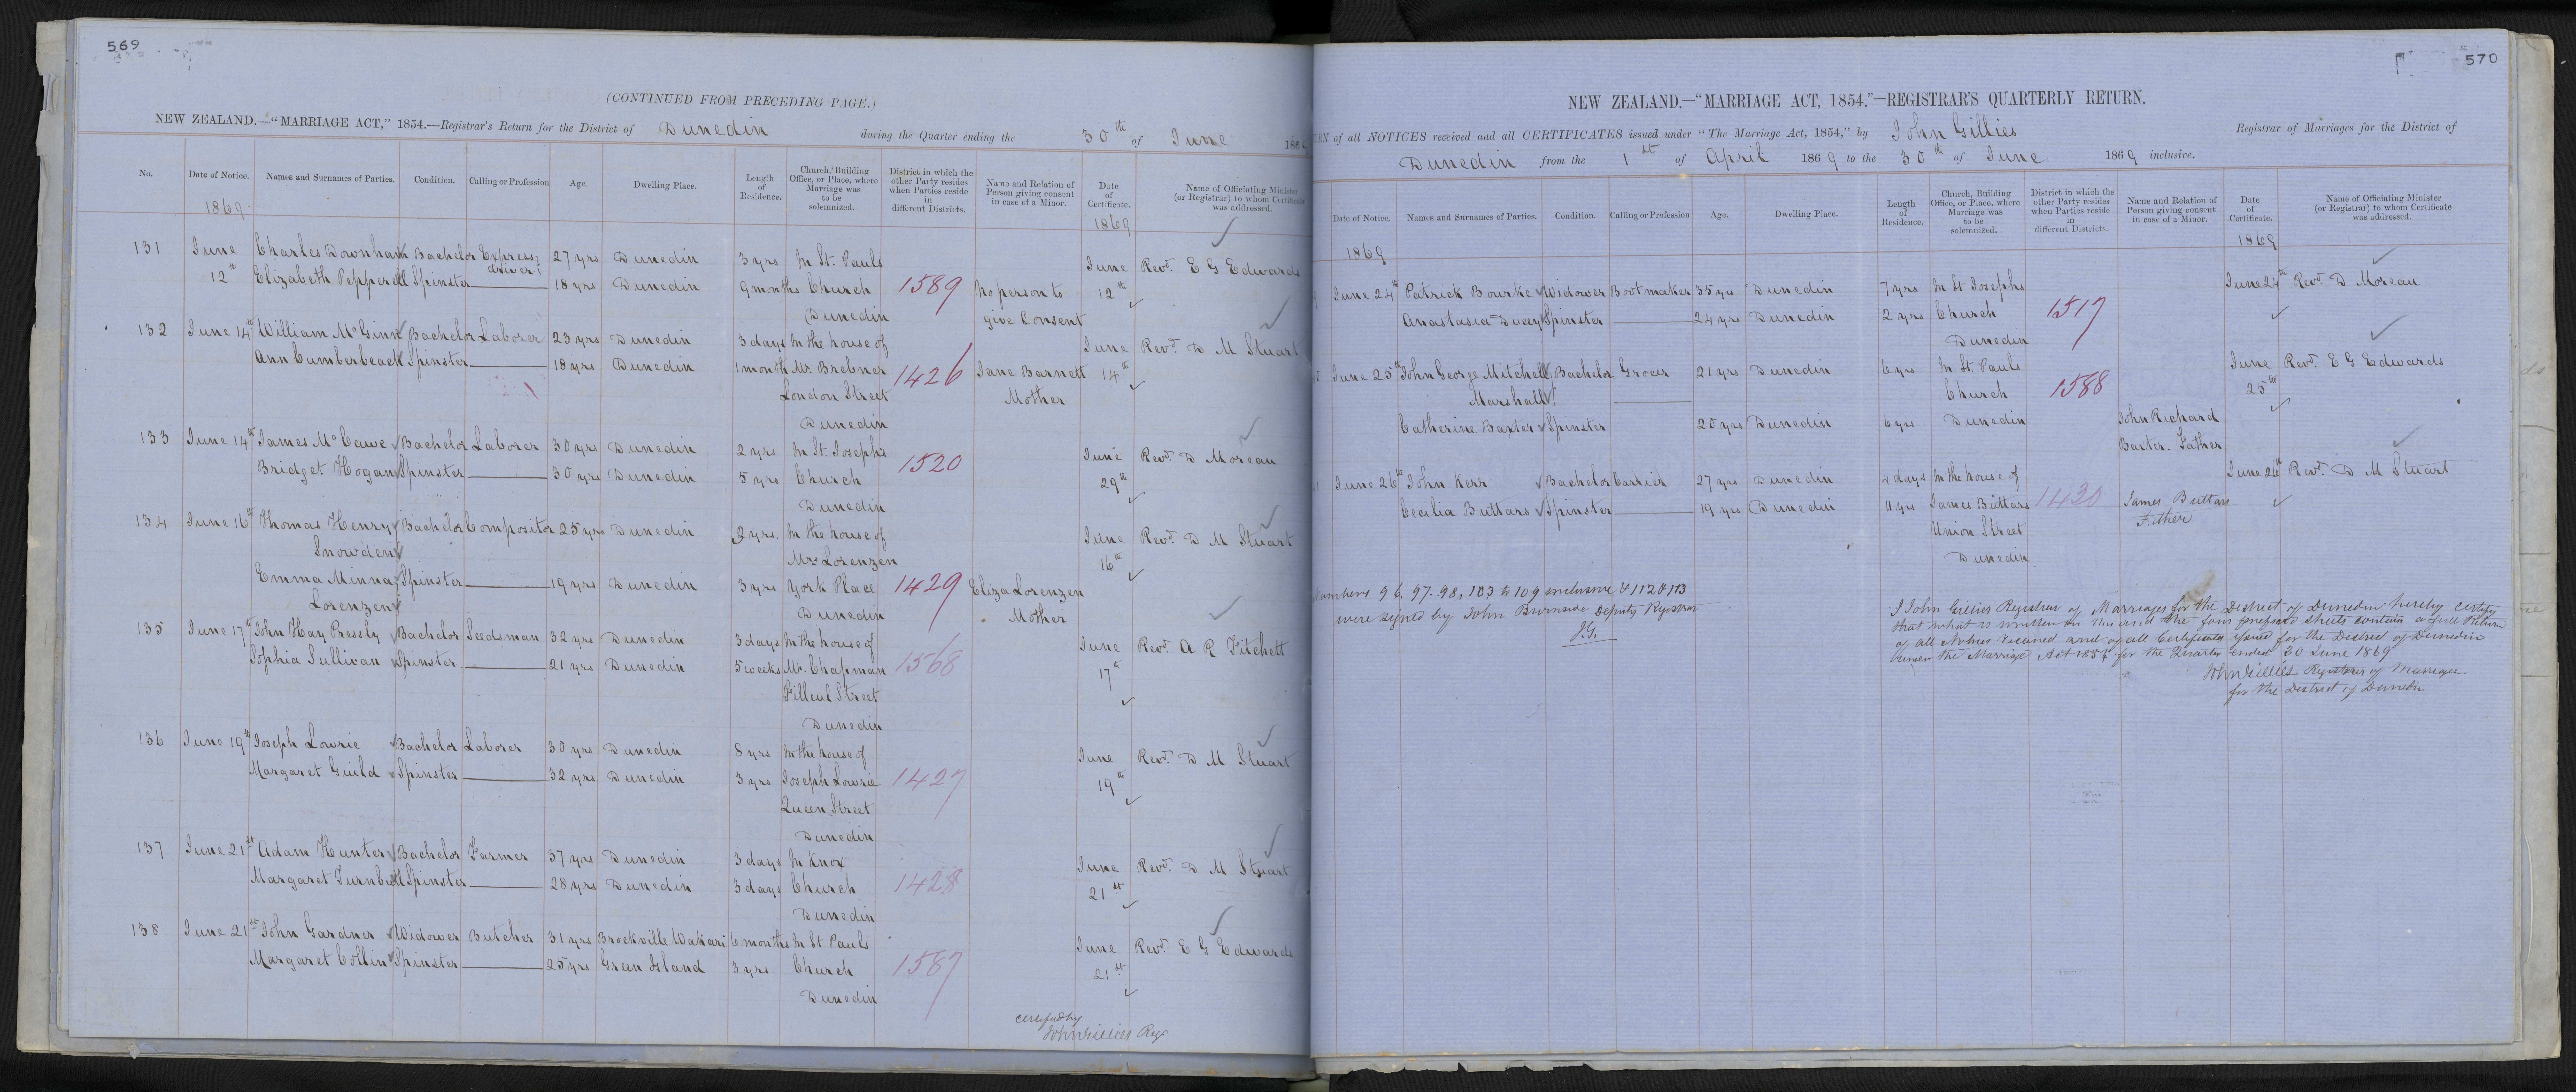 569
(CONTINUED FROM PRECEDING PAGE.)
NEW ZEALAND.—"MARRIAGE ACT," 1854.—Registrar's Return for the District of Dunedin during the Quarter ending the 30th of June 186
No. Date of Notice. Names and Surnames of Parties. Condition. Calling or Profession Age. Dwelling Place. Length of Residence. Church, Building Office, or Place, where Marriage was to be solemnized. District in which the other Party resides when Parties reside in different Districts. Name and Relation of Person giving consent in case of a Minor. Date of Certificate. Name of Officiating Minister (or Registrar) to whom Certificate was addressed.
1869 1869
131 June Charles Downham Bachelor Express driver 27 yrs Dunedin 3 yrs In St. Pauls June Revd. E G Edwards
12th Elizabeth Pepperell Spinster 18 yrs Dunedin 9 months Church 1589 No person to 12th
Dunedin give Consent
132 June 14th William McGinn Bachelor Laborer 23 yrs Dunedin 3 days In the house of June Revd. D M Stuart
Ann Cumberbeach Spinster 18 yrs Dunedin 1 month Mr Brebner 1426 Jane Barnett 14th
London Street Mother
Dunedin
133 June 14th James McCawe Bachelor Laborer 30 yrs Dunedin 2 yrs In St. Josephs June Revd. D Moreau
Bridget Hogan Spinster 30 yrs Dunedin 5 yrs Church 1520 29th
Dunedin
134 June 16th Thomas Henry Bachelor Compositor 25 yrs Dunedin 3 yrs. In the house of June Revd. D M Stuart
Snowden Mrs Lorenzen 16th
Emma Minna Spinster 19 yrs Dunedin 3 yrs York Place 1429 Eliza Lorenzen
Lorenzen Dunedin Mother
135 June 17th John Hay Pressly Bachelor Seedsman 32 yrs Dunedin 3 days In the house of June Revd. A R Fitchett
Sophia Sullivan Spinster 21 yrs Dunedin 5 weeks Mr. Chapman 1568 17th
Filleul Street
Dunedin
136 June 19th Joseph Lowrie Bachelor Laborer 30 yrs Dunedin 8 yrs In the house of June Revd. D M Stuart
Margaret Guild Spinster 32 yrs Dunedin 3 yrs Joseph Lowrie 1427 19th
Queen Street
Dunedin
137 June 21st Adam Hunter Bachelor Farmer 37 yrs Dunedin 3 days In Knox June Revd. D M Stuart
Margaret Turnbull Spinster 28 yrs Dunedin 3 days Church 1428 21st
Dunedin
138 June 21st John Gardner Widower Butcher 31 yrs Brockville Wakari 6 months In St Pauls June Revd. E G Edwards
Margaret Collin Spinster 25 yrs Green Island 3 yrs Church 1587 21st
Dunedin
certified by
John Gillies Regr
570
NEW ZEALAND.—"MARRIAGE ACT, 1854."—REGISTRAR'S QUARTERLY RETURN.
RN of all NOTICES received and all CERTIFICATES issued under "The Marriage Act, 1854," by John Gillies Registrar of Marriages for the District of
Dunedin from the 1st of April 1869 to the 30th of June 1869 inclusive.
Date of Notice. Names and Surnames of Parties. Condition. Calling or Profession Age. Dwelling Place. Length of Residence. Church, Building Office, or Place, where Marriage was to be solemnized. District in which the other Party resides when Parties reside in different Districts. Name and Relation of Person giving consent in case of a Minor. Date of Certificate. Name of Officiating Minister (or Registrar) to whom Certificate was addressed.
1869 1869
June 24th Patrick Bourke Widower Bootmaker 35 yrs Dunedin 7 yrs In St Josephs June 24th Revd. D Moreau
Anastasia Ducey Spinster 24 yrs Dunedin 2 yrs Church 1517
Dunedin
June 25th John George Mitchell Bachelor Grocer 21 yrs Dunedin 6 yrs In St. Pauls June Revd. E G Edwards
Marshall Church 1588 25th
Catherine Baxter Spinster 20 yrs Dunedin 6 yrs Dunedin John Richard
Baxter. Father
June 26th John Kerr Bachelor Carrier 27 yrs Dunedin 4 days In the house of June 26th Revd. D M Stuart
Cecilia Buttars Spinster 19 yrs Dunedin 11 yrs James Buttars 1430 James Buttars
Union Street Father
Dunedin
Numbers 96, 97. 98, 103 to 109 inclusive & 112 & 113
were signed by John Burnside Deputy Registrar
J.G.
I John Gillies Registrar of Marriages for the District of Dunedin hereby certify
that what is written on this and the four prefixed sheets contain a full Return
of all Notices received and of all Certificates issued for the District of Dunedin
under the Marriage Act 1854 for the Quarter ended 30 June 1869
John Gillies Registrar of Marriages
for the District of Dunedin